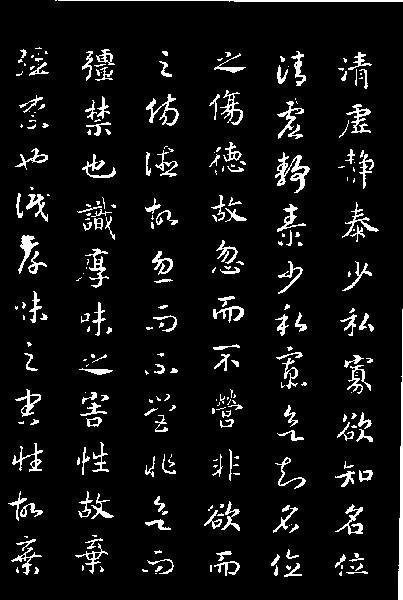 清虛靜泰少私寡欲知名位
清虛靜泰少私寡欲知名位
之傷德故忽而不營非欲而
之傷德故忽而不營非欲而
彊禁也識厚味之害性故棄
彊禁也識厚味之害性故棄